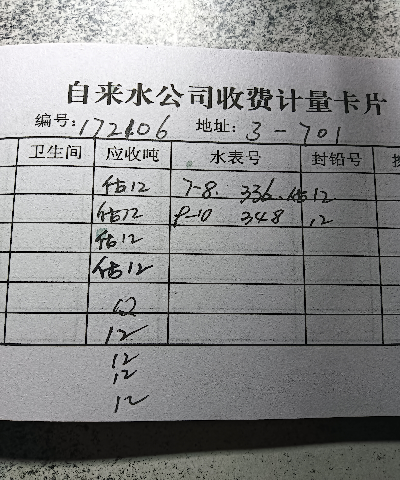 自来水公司收费计量卡片
编号:172106 地址:3-701
卫生间 应收吨 水表号 封铅号
估12 7-8. 336. 估12
估12 9-10 348 ,12
估12
估12
12
12
12
12